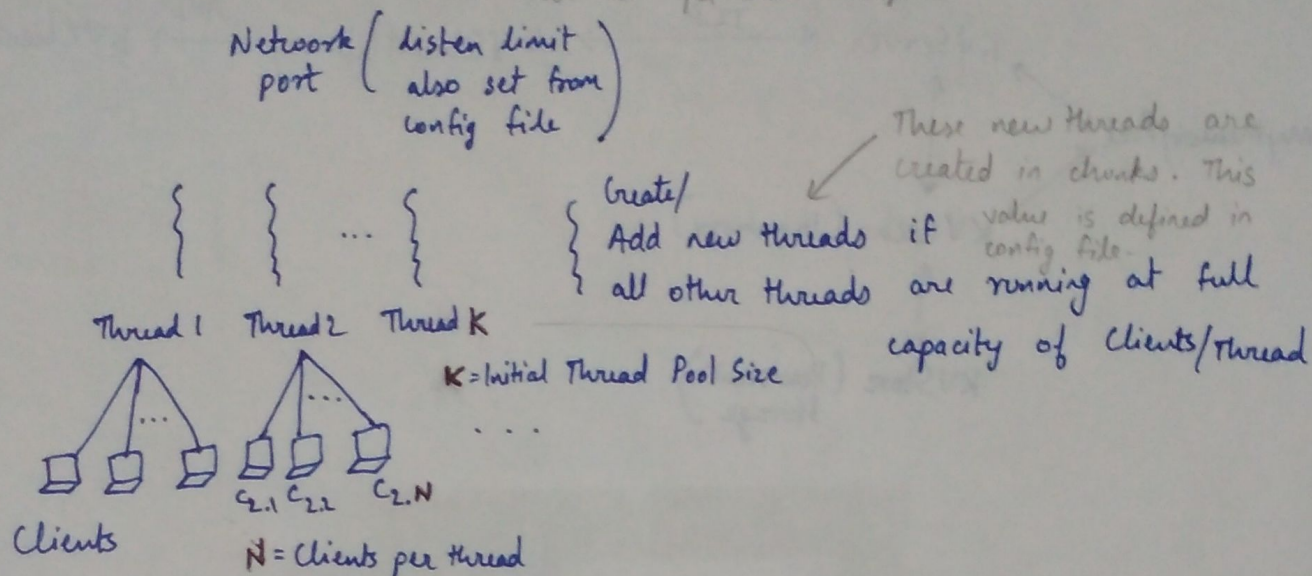 Network ( listen limit
port also set from
config file )
These new threads are
created in chunks. This
value is defined in
config file.
Create/
Add new threads if
all other threads are running at full
capacity of Clients/Thread
...
Thread 1 Thread 2 Thread K
K = Initial Thread Pool Size
... ...
. . .
C2.1 C2.2 C2.N
Clients
N = Clients per thread